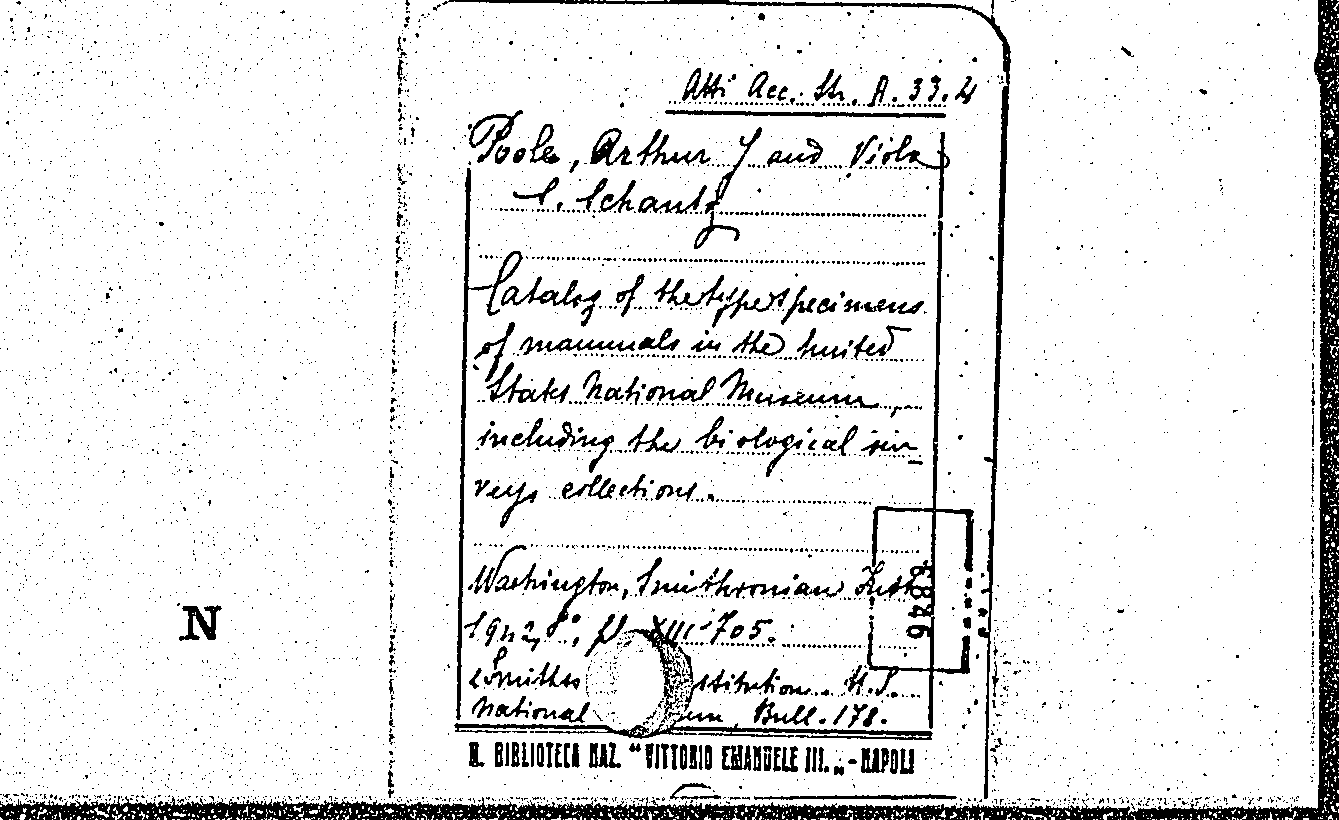 Atti Acc. Str. A. 33.4
Poole, Arthur J and Viola
S. Schantz
Catalog of the type specimens
of mammals in the United
States National Museum,
including the biological sur-
veys collections.
Washington, Smithsonian Inst.
1942, 8°, pl XIII-705.
Smiths stitution. U.S.
National um, Bull. 178.
6846
N
R. BIBLIOTECA NAZ. "VITTORIO EMANUELE III.„ - NAPOLI